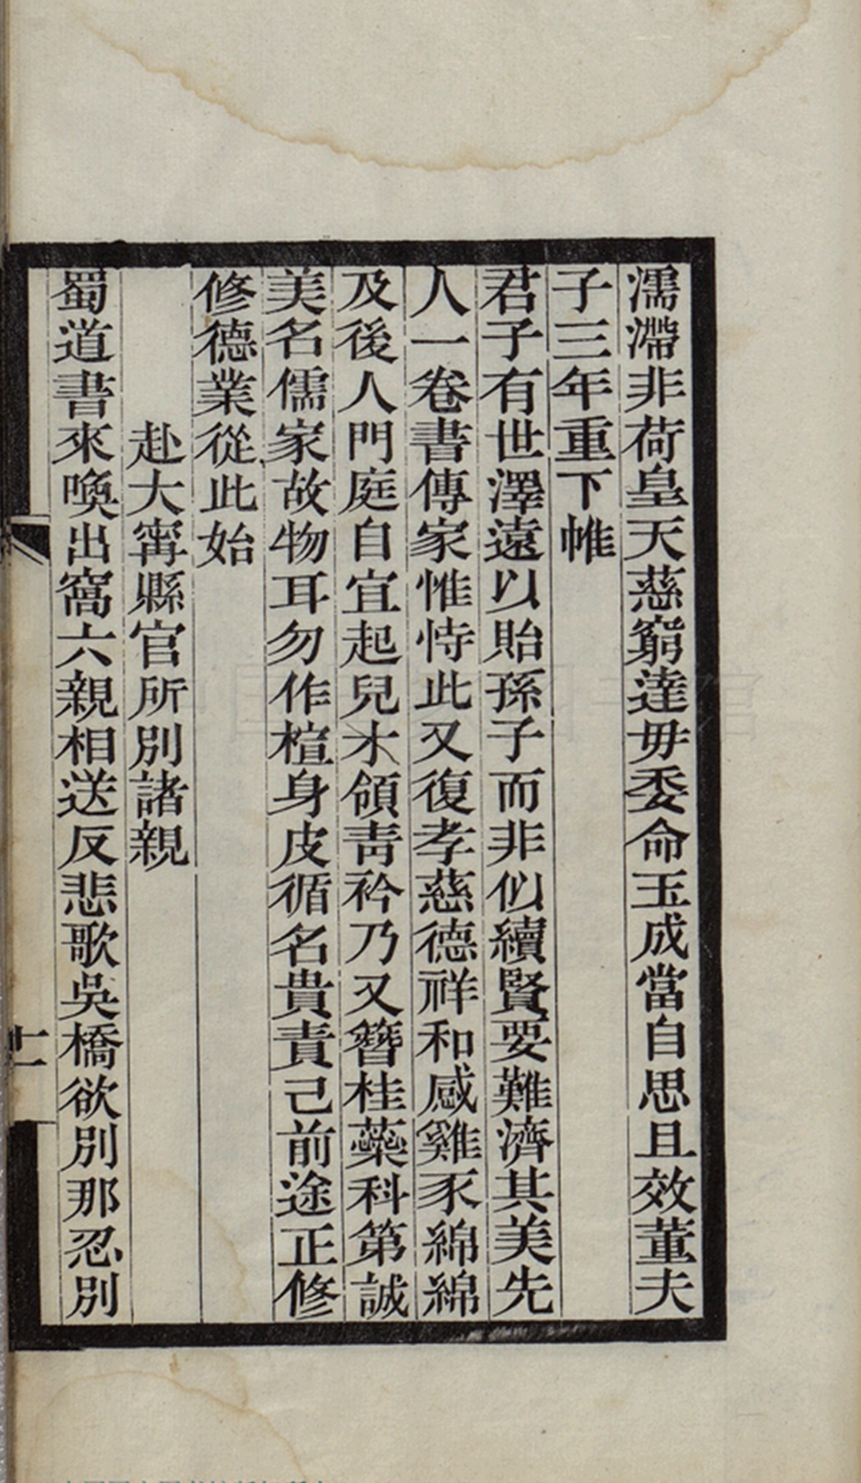 濡滯非荷皇天慈窮達毋委命玉成當自思且效董夫
子三年重下帷
君子有世澤遠以貽孫子而非似續賢要難濟其美先
人一卷書傳家惟恃此又復孝慈德祥和感雞豕綿綿
及後人門庭自宜起兒才領靑衿乃又簪桂蘂科第誠
美名儒家故物耳勿作楦身皮循名貴責己前途正修
修德業從此始
赴大甯縣官所別諸親
蜀道書來喚出窩六親相送反悲歌吳橋欲別那忍別
十一